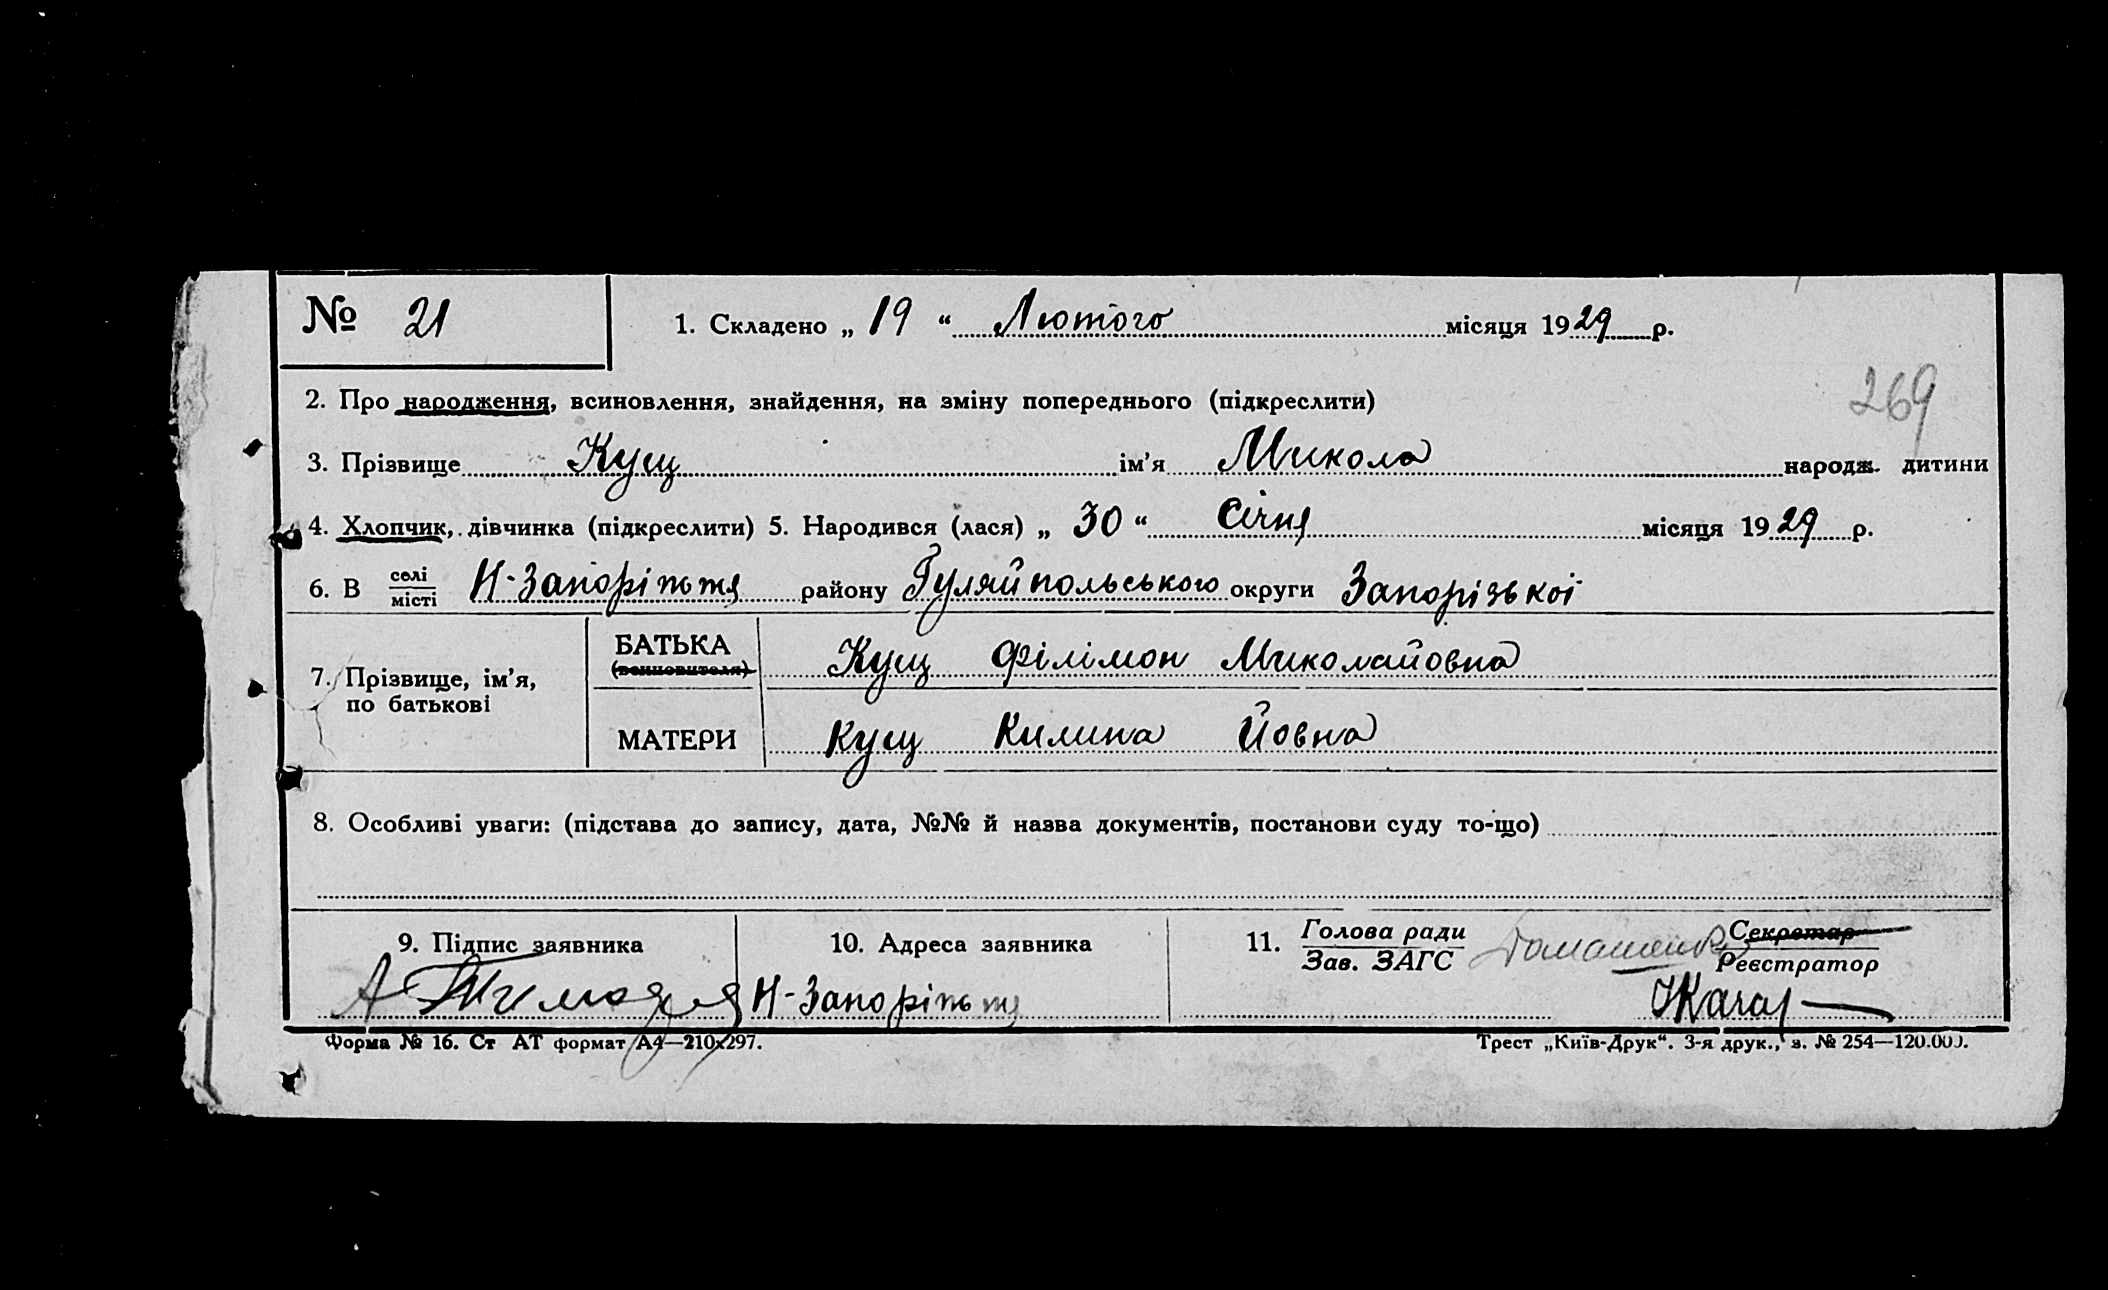 № 21
1. Складено „ 19 “ Лютого місяця 1929 р.
269
2. Про народження, всиновлення, знайдення, на зміну попереднього (підкреслити)
3. Прізвище Кущ ім’я Микола народж. дитини
4. Хлопчик, дівчинка (підкреслити) 5. Народився (лася) „ 30 “ Січня місяця 1929 р.
6. В селі/місті Н-Запоріжжя району Гуляйпольського округи Запорізької
7. Прізвище, ім’я, по батькові
БАТЬКА (всиновителя) Кущ Філімон Миколайовна
МАТЕРИ Кущ Килина Йовна
8. Особливі уваги: (підстава до запису, дата, №№ й назва документів, постанови суду то-що)
9. Підпис заявника
10. Адреса заявника
11. Голова ради / Зав. ЗАГС Домашенко Секретар / Реєстратор
Н-Запоріжжя
Форма № 16. Ст АТ формат А4—210х297.
Трест „Київ-Друк“. 3-я друк., з. № 254—120.000.